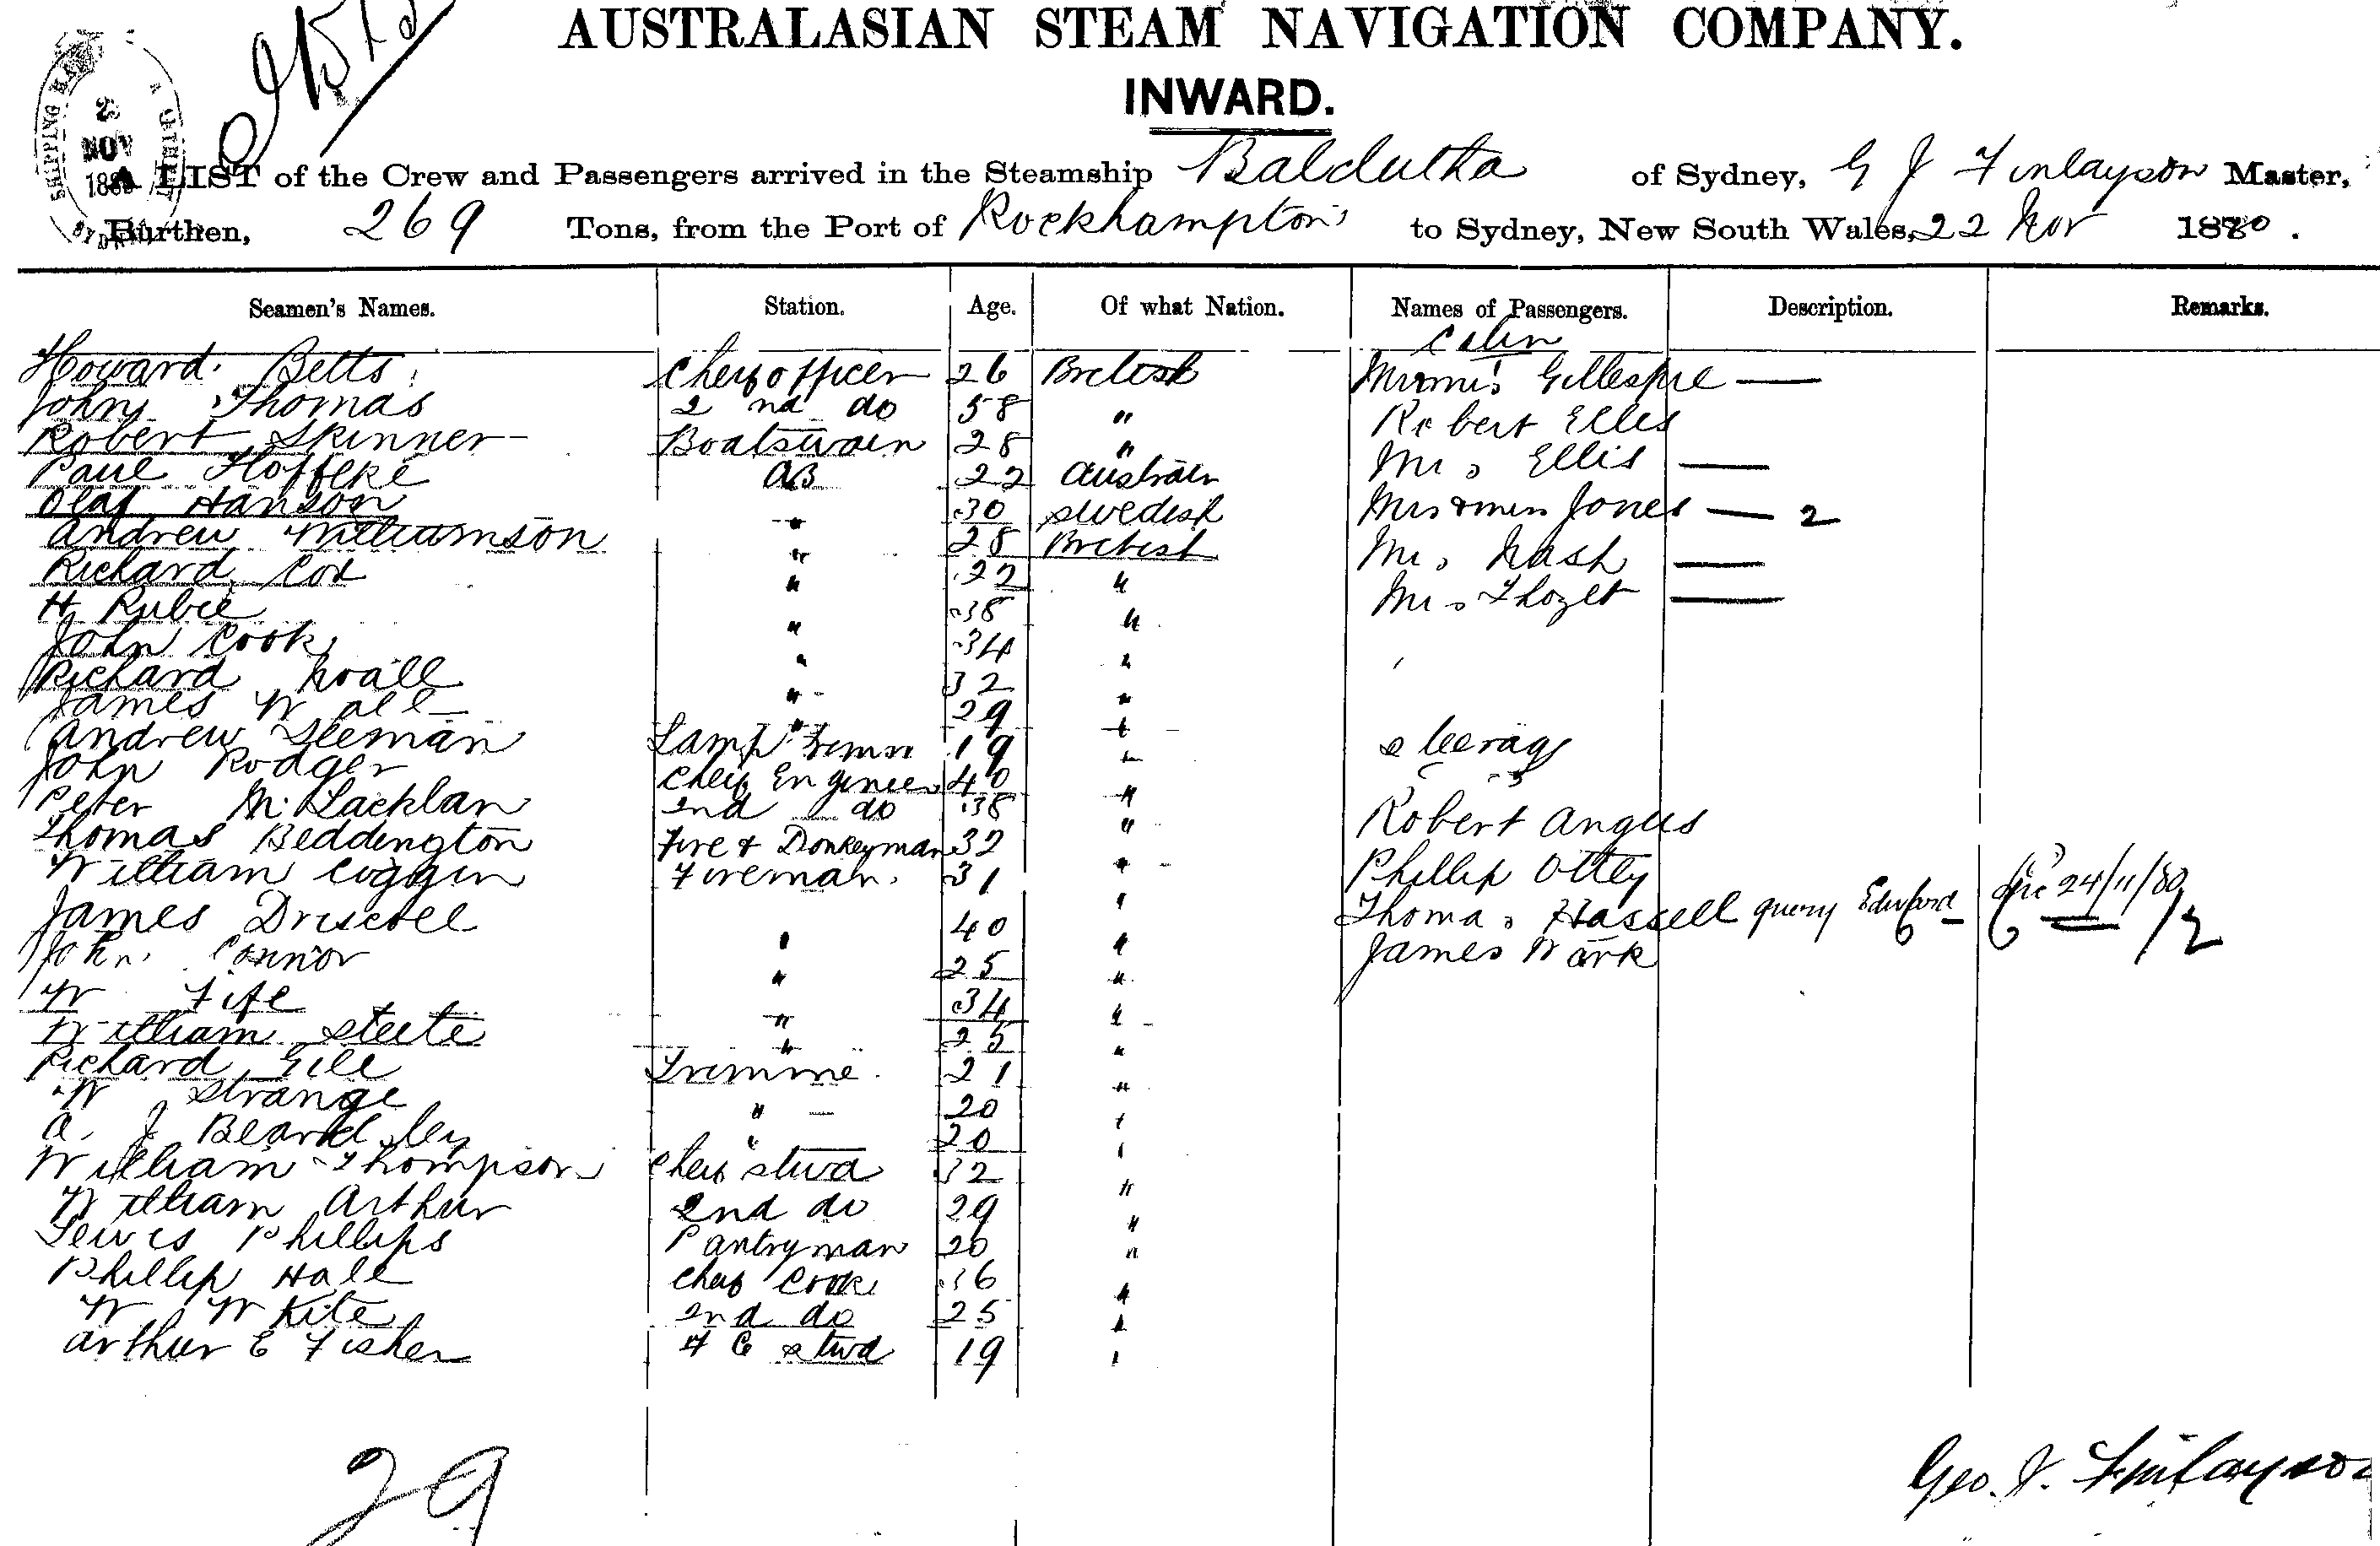 AUSTRALASIAN STEAM NAVIGATION COMPANY.
INWARD.
SHIPPING
NOV
A LIST of the Crew and Passengers arrived in the Steamship Balclutha of Sydney, G J Finlayson Master,
Burthen, 269 Tons, from the Port of Rockhampton to Sydney, New South Wales, 22 Nov 1880.
Seamen's Names. Station. Age. Of what Nation. Names of Passengers. Description. Remarks.
Cabin
Howard Betts Cheif officer 26 British Gillespie —
John Thomas 2nd do 58 " Robert Ellis
Robert Skinner Boatswain 28 " Mrs Ellis —
Paul Hoffeke AB 22 Austrain
Olaf Hanson " 30 Swedish Mrs & miss Jones — 2
Andrew Williamson " 28 British
Richard Cox " 22 " Mrs Nash —
H Rubie " 38 " Mrs Thozet —
John Cook " 34 "
Richard Noall " 32 "
James Wall " 29 "
Andrew Sleeman Lamp trimmr 19 " Steerage
John Rodger Cheif Engineer 40
Peter McLachlan 2nd do 38 "
Thomas Beddington Fire & Donkeyman 32 " Robert Angus
William Coggin Fireman 31 " Phillip Ottey
James Driscoll " 40 " Thomas Hassell query Edward 24/11/80
John Connor " 25 " James Wark
W Fife " 34 "
William Steete " 25 "
Richard Gill Trimme 21 "
W Strange " 20 "
A. J Beardsley " 20 "
William Thompson Cheif stwd 32 "
William Arthur 2nd do 29 "
Lewis Phillips Pantryman 20 "
Phillip Hall Cheif Cook 36 "
W W Kite 2nd do 25 "
Arthur E Fisher F C stwd 19 "
29
Geo. J. Finlayson